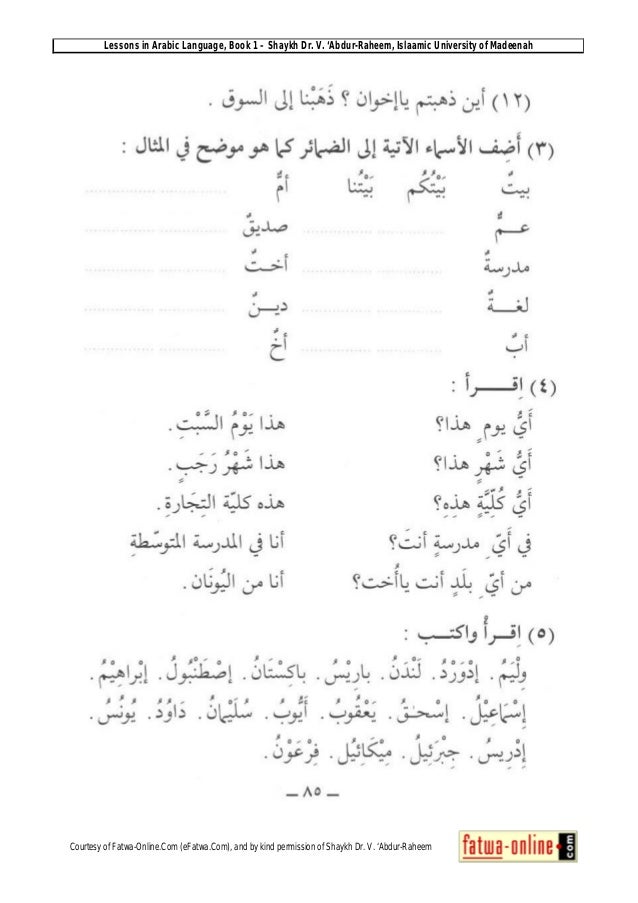 Lessons in Arabic Language, Book 1 - Shaykh Dr. V. 'Abdur-Raheem, Islaamic University of Madeenah
(١٢) أين ذهبتم ياإخوان ؟ ذَهَبْنا إلى السوق .
(٣) أَضِف الأسماء الآتية إلى الضمائر كما هو موضح في المثال :
بيتٌ بَيْتُكُم بَيْتُنا أمٌّ ............ ............
عـــمٌّ ............ ............ صديقٌ ............ ............
مدرسةٌ ............ ............ أخـتٌ ............ ............
لغـــةٌ ............ ............ ديـــنٌ ............ ............
أبٌ ............ ............ أخٌ ............ ............
(٤) اِقـــــرأ :
أَيُّ يومٍ هذا؟ هذا يَوْمُ السَّبْتِ.
أَيُّ شَهْرٍ هذا؟ هذا شَهْرُ رَجَبٍ.
أَيُّ كُلِّيَّةٍ هذِهِ؟ هذه كليّة التِجَارةِ.
في أَيِّ مدرسةٍ أنتَ؟ أنا في المدرسة المتوسّطةِ
من أيّ بلَدٍ أنت ياأُخت؟ أنا من اليُونَان.
(٥) اِقـــرأْ واكتـــب :
وِلْيَمُ. إدْوَرْدُ. لَنْدَنُ. بارِيْسُ. باكِسْتَانُ. إصْطَنْبُولُ. إبْراهِيْمُ.
إسْمَاعِيْلُ. إسْحـٰقُ. يَعْقُوبُ. أَيُّوبُ. سُلَيْمانُ. دَاوُدُ. يُونُسُ.
إدْرِيسُ. جِبْرَئِيلُ. مِيْكَائِيُل. فِرْعَوْنُ.
– ٨٥ –
Courtesy of Fatwa-Online.Com (eFatwa.Com), and by kind permission of Shaykh Dr. V. 'Abdur-Raheem
fatwa-online.com